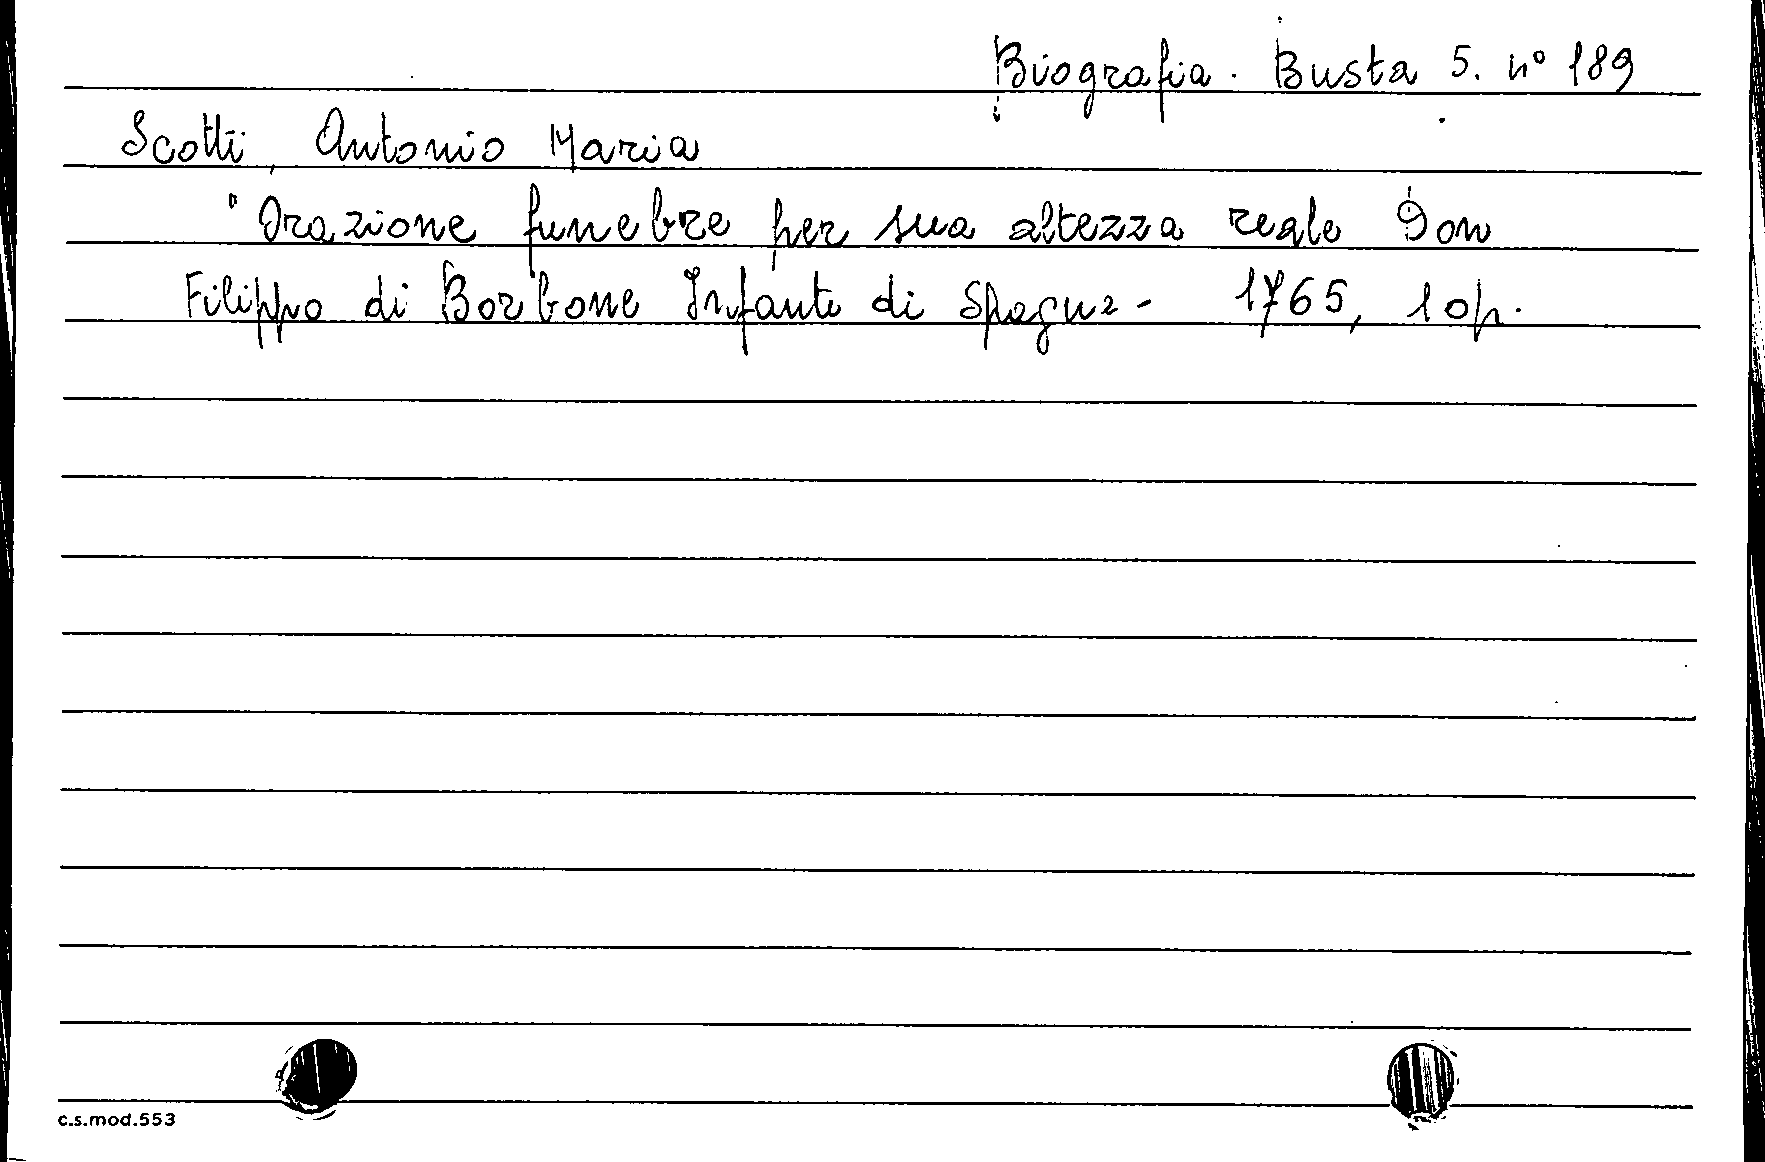 Biografia. Busta 5. n° 189
Scotti, Antonio Maria
"Orazione funebre per sua altezza reale Don
Filippo di Borbone Infante di Spagna - 1765, 1 op.
c.s.mod.553